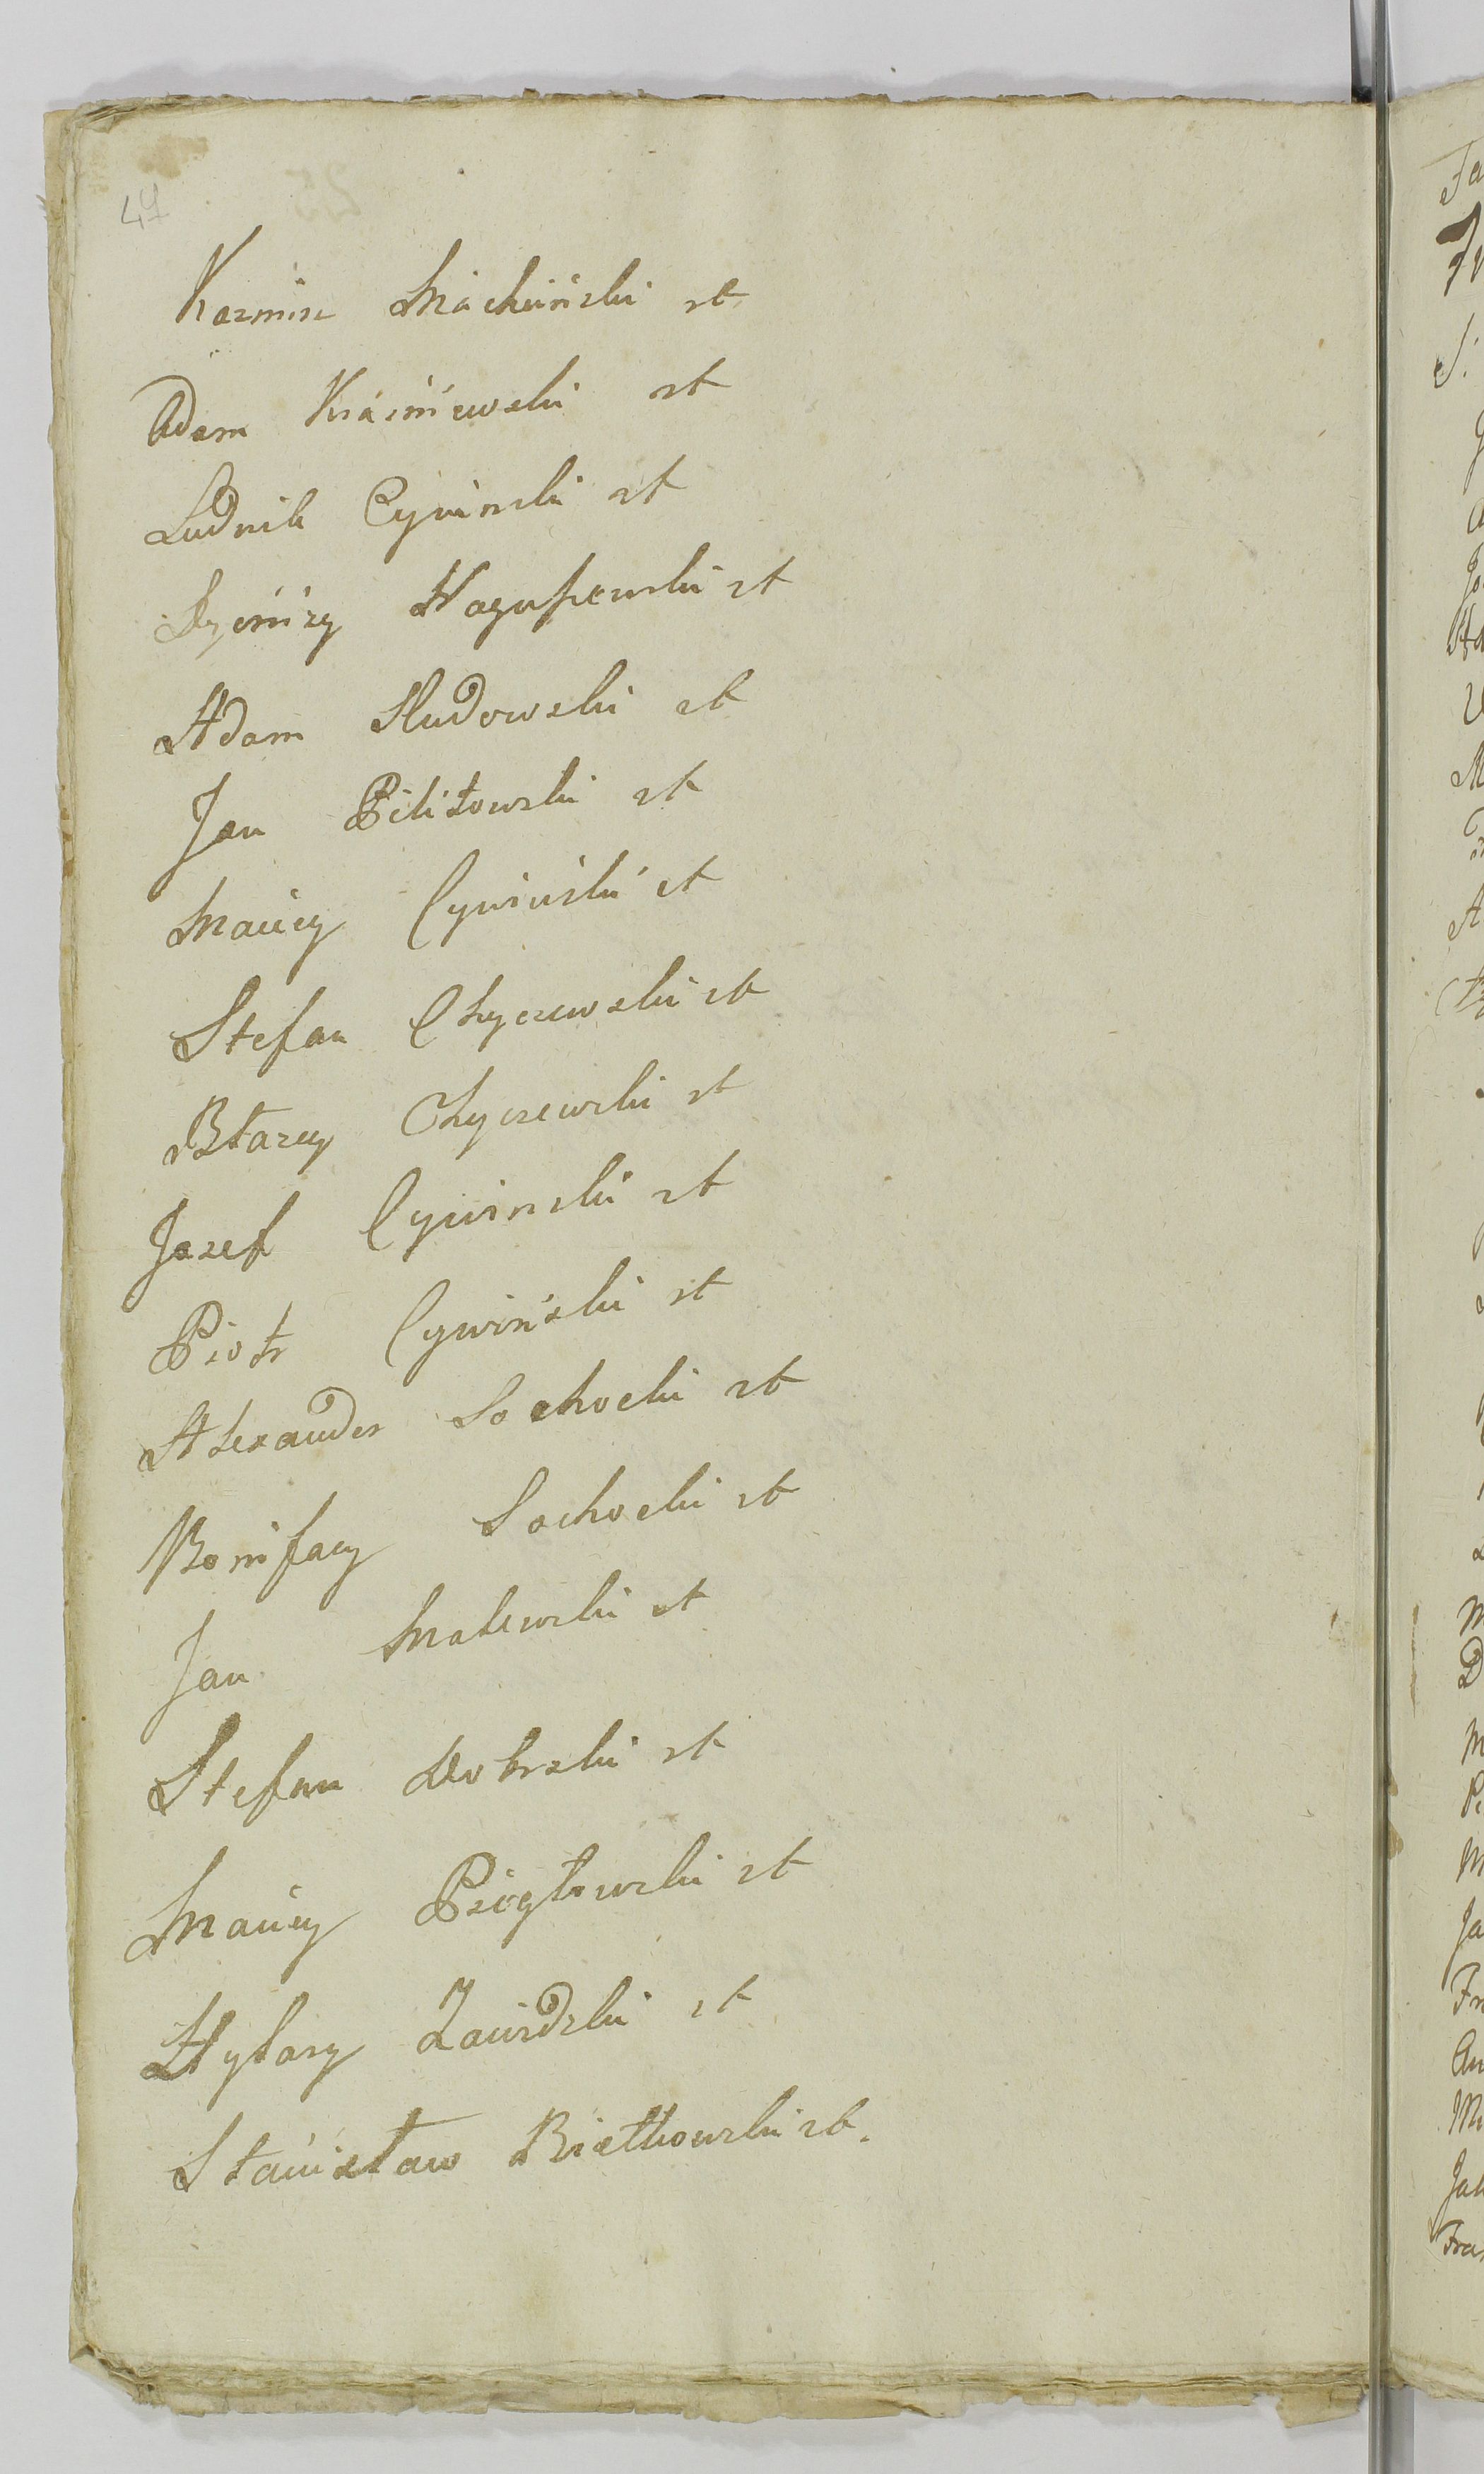 47
Kazmirz Máchiński st
Adam Kraśniewski st
Ludwik Cywinski st
Adam Hudowski st
Jan Pilitowski st
Maciey Cywiński st
Stefan Chyczewski st
Błazey Chyczewski st
Jozef Cywinski st
Piotr Cywiński st
Alexander Sochocki st
Bonifacy Sochocki st
Jan Malewski st
Stefan Dobrski st
Maciey st
Hylary Zawidzki st
Stanisław Białkowski st.